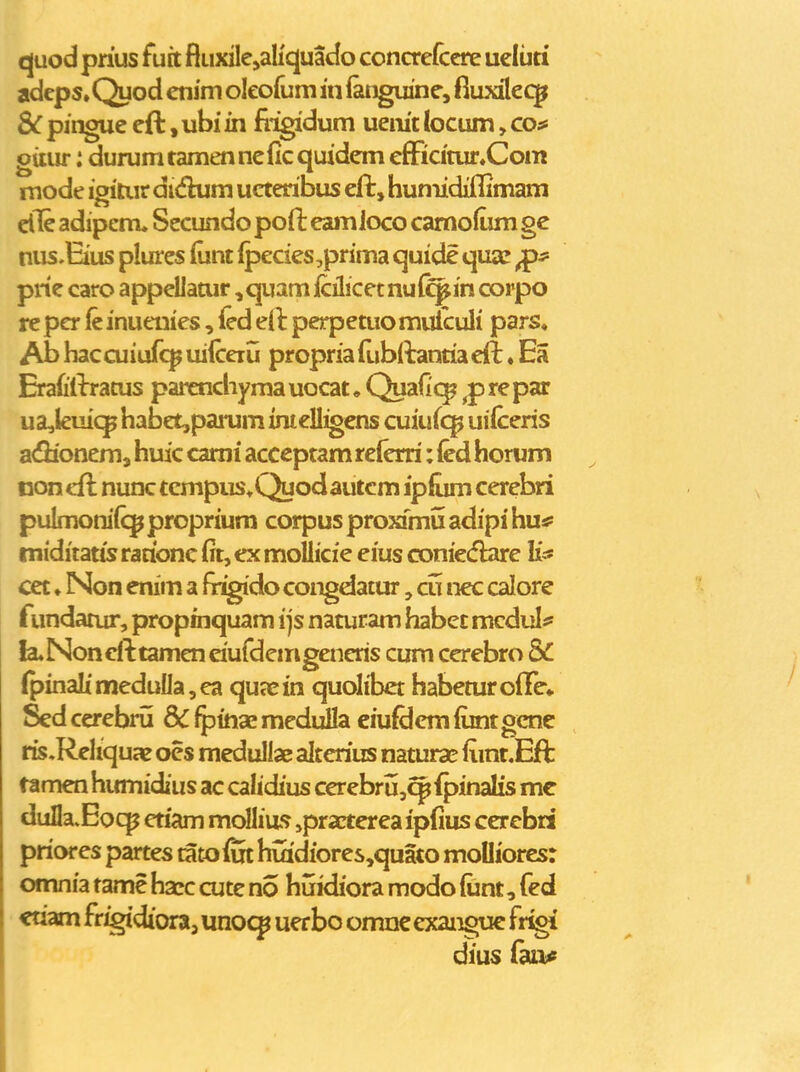 quod prius fuit fluxile,aliquādo concreſcere ueluti
adeps.Quod enim oleoſum in ſanguine, fluxileqꝫ
& pingue eſt, ubi in frigidum uenit locum, co⸗
gitur : durum tamen ne ſic quidem efficitur.Com
mode igitur dictum ueteribus eſt, humidiſſimam
eſſe adipem. Secundo poſt eam loco carnoſum ge
nus.Eius plures ſunt ſpecies,prima quidē quæ ꝓ⸗
prie caro appellatur, quam ſcilicet nuſqꝫ in corpo
re per ſe inuenies, ſed eſt perpetuo muſculi pars.
Ab hac cuiuſqꝫ uiſcerū propria ſubſtantia eſt. Eā
Eraſiſtratus parenchyma uocat. Quaſiqꝫ ꝓ re par
ua,leuiqꝫ habet,parum intelligens cuiuſqꝫ uiſceris
actionem, huic carni acceptam referri : ſed horum
non eſt nunc tempus.Quod autem ipſum cerebri
pulmoniſqꝫ proprium corpus proximū adipi hu⸗
miditatis ratione ſit, ex mollicie eius coniectare li⸗
cet. Non enim a frigido congelatur, cū nec calore
fundatur, propinquam ijs naturam habet medul⸗
la.Non eſt tamen eiuſdem generis cum cerebro &
ſpinali medulla, ea quæ in quolibet habetur oſſe.
Sed cerebrū & ſpinæ medulla eiuſdem ſunt gene
ris.Reliquæ oēs medullæ alterius naturæ ſunt.Eſt
tamen humidius ac calidius cerebrū,qꝫ ſpinalis me
dulla.Eoqꝫ etiam mollius,præterea ipſius cerebri
priores partes tāto ſūt hūidiores,quāto molliores:
omnia tamē hæc cute nō hūidiora modo ſunt, ſed
etiam frigidiora, unoqꝫ uerbo omne exangue frigi
dius ſan⸗